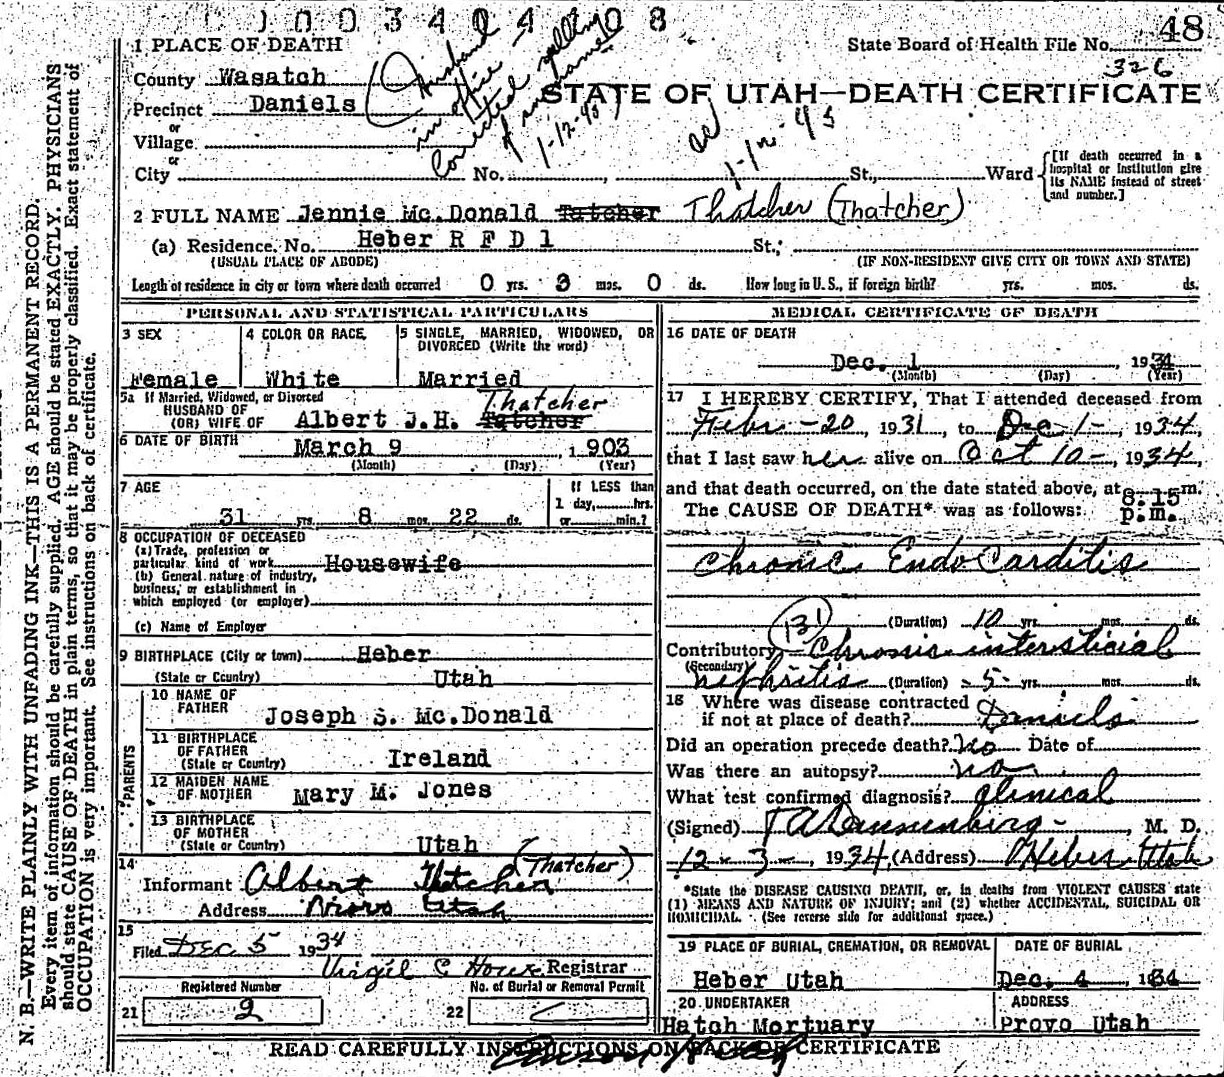 0003404408
48
1 PLACE OF DEATH
State Board of Health File No.
326
County Wasatch
Precinct Daniels
(Husband in office corrected spelling of surname 1-12-45)
STATE OF UTAH—DEATH CERTIFICATE
1-12-45
or
Village
or
City No. , St., Ward
[If death occurred in a hospital or institution give its NAME instead of street and number.]
2 FULL NAME Jennie Mc.Donald Tatcher Thatcher (Thatcher)
(a) Residence. No. Heber R F D 1 St.;
(USUAL PLACE OF ABODE) (IF NON-RESIDENT GIVE CITY OR TOWN AND STATE)
Length of residence in city or town where death occurred 0 yrs. 3 mos. 0 ds. How long in U. S., if foreign birth? yrs. mos. ds.
PERSONAL AND STATISTICAL PARTICULARS
3 SEX
Female
4 COLOR OR RACE
White
5 SINGLE, MARRIED, WIDOWED, OR DIVORCED (Write the word)
Married
5a If Married, Widowed, or Divorced
HUSBAND OF
(OR) WIFE OF Albert J.H. Tatcher Thatcher
6 DATE OF BIRTH March 9 , 1903
(Month) (Day) (Year)
7 AGE
31 yrs. 8 mos. 22 ds.
If LESS than
1 day, hrs.
or min.?
8 OCCUPATION OF DECEASED
(a) Trade, profession or
particular kind of work Housewife
(b) General nature of industry,
business, or establishment in
which employed (or employer)
(c) Name of Employer
9 BIRTHPLACE (City or town) Heber
(State or Country) Utah
PARENTS
10 NAME OF
FATHER
Joseph S. Mc.Donald
11 BIRTHPLACE
OF FATHER
(State or Country) Ireland
12 MAIDEN NAME
OF MOTHER Mary M. Jones
13 BIRTHPLACE
OF MOTHER
(State or Country) Utah
14
Informant Albert Thatcher (Thatcher)
Address Provo Utah
15
Filed Dec 5 1934
Virgil C Registrar
Registered Number
21 2
No. of Burial or Removal Permit
22
MEDICAL CERTIFICATE OF DEATH
16 DATE OF DEATH
Dec. 1 1934
(Month) (Day) (Year)
17 I HEREBY CERTIFY, That I attended deceased from
Febr - 20, 1931, to Dec - 1 -, 1934,
that I last saw her alive on Oct 10 -, 1934,
and that death occurred, on the date stated above, at 8.15 p.m. m.
The CAUSE OF DEATH* was as follows:
Chronic Endo Carditis
(Duration) 10 yrs. mos. ds.
131
Contributory Chronic intersticial
(Secondary)
nephritis (Duration) - 5 - yrs. mos. ds.
18 Where was disease contracted
if not at place of death? Daniels
Did an operation precede death? No Date of
Was there an autopsy? no
What test confirmed diagnosis? Clinical
(Signed) T A Dannenberg - , M. D.
12 - 3 -, 1934, (Address) Heber Utah
*State the DISEASE CAUSING DEATH, or, in deaths from VIOLENT CAUSES state
(1) MEANS AND NATURE OF INJURY; and (2) whether ACCIDENTAL, SUICIDAL OR
HOMICIDAL. (See reverse side for additional space.)
19 PLACE OF BURIAL, CREMATION, OR REMOVAL
Heber Utah
DATE OF BURIAL
Dec. 4 , 1934
20 UNDERTAKER
Hatch Mortuary
ADDRESS
Provo Utah
READ CAREFULLY INSTRUCTIONS ON BACK OF CERTIFICATE
N. B.—WRITE PLAINLY WITH UNFADING INK—THIS IS A PERMANENT RECORD.
Every item of information should be carefully supplied. AGE should be stated EXACTLY. PHYSICIANS
should state CAUSE OF DEATH in plain terms, so that it may be properly classified. Exact statement of
OCCUPATION is very important. See instructions on back of certificate.